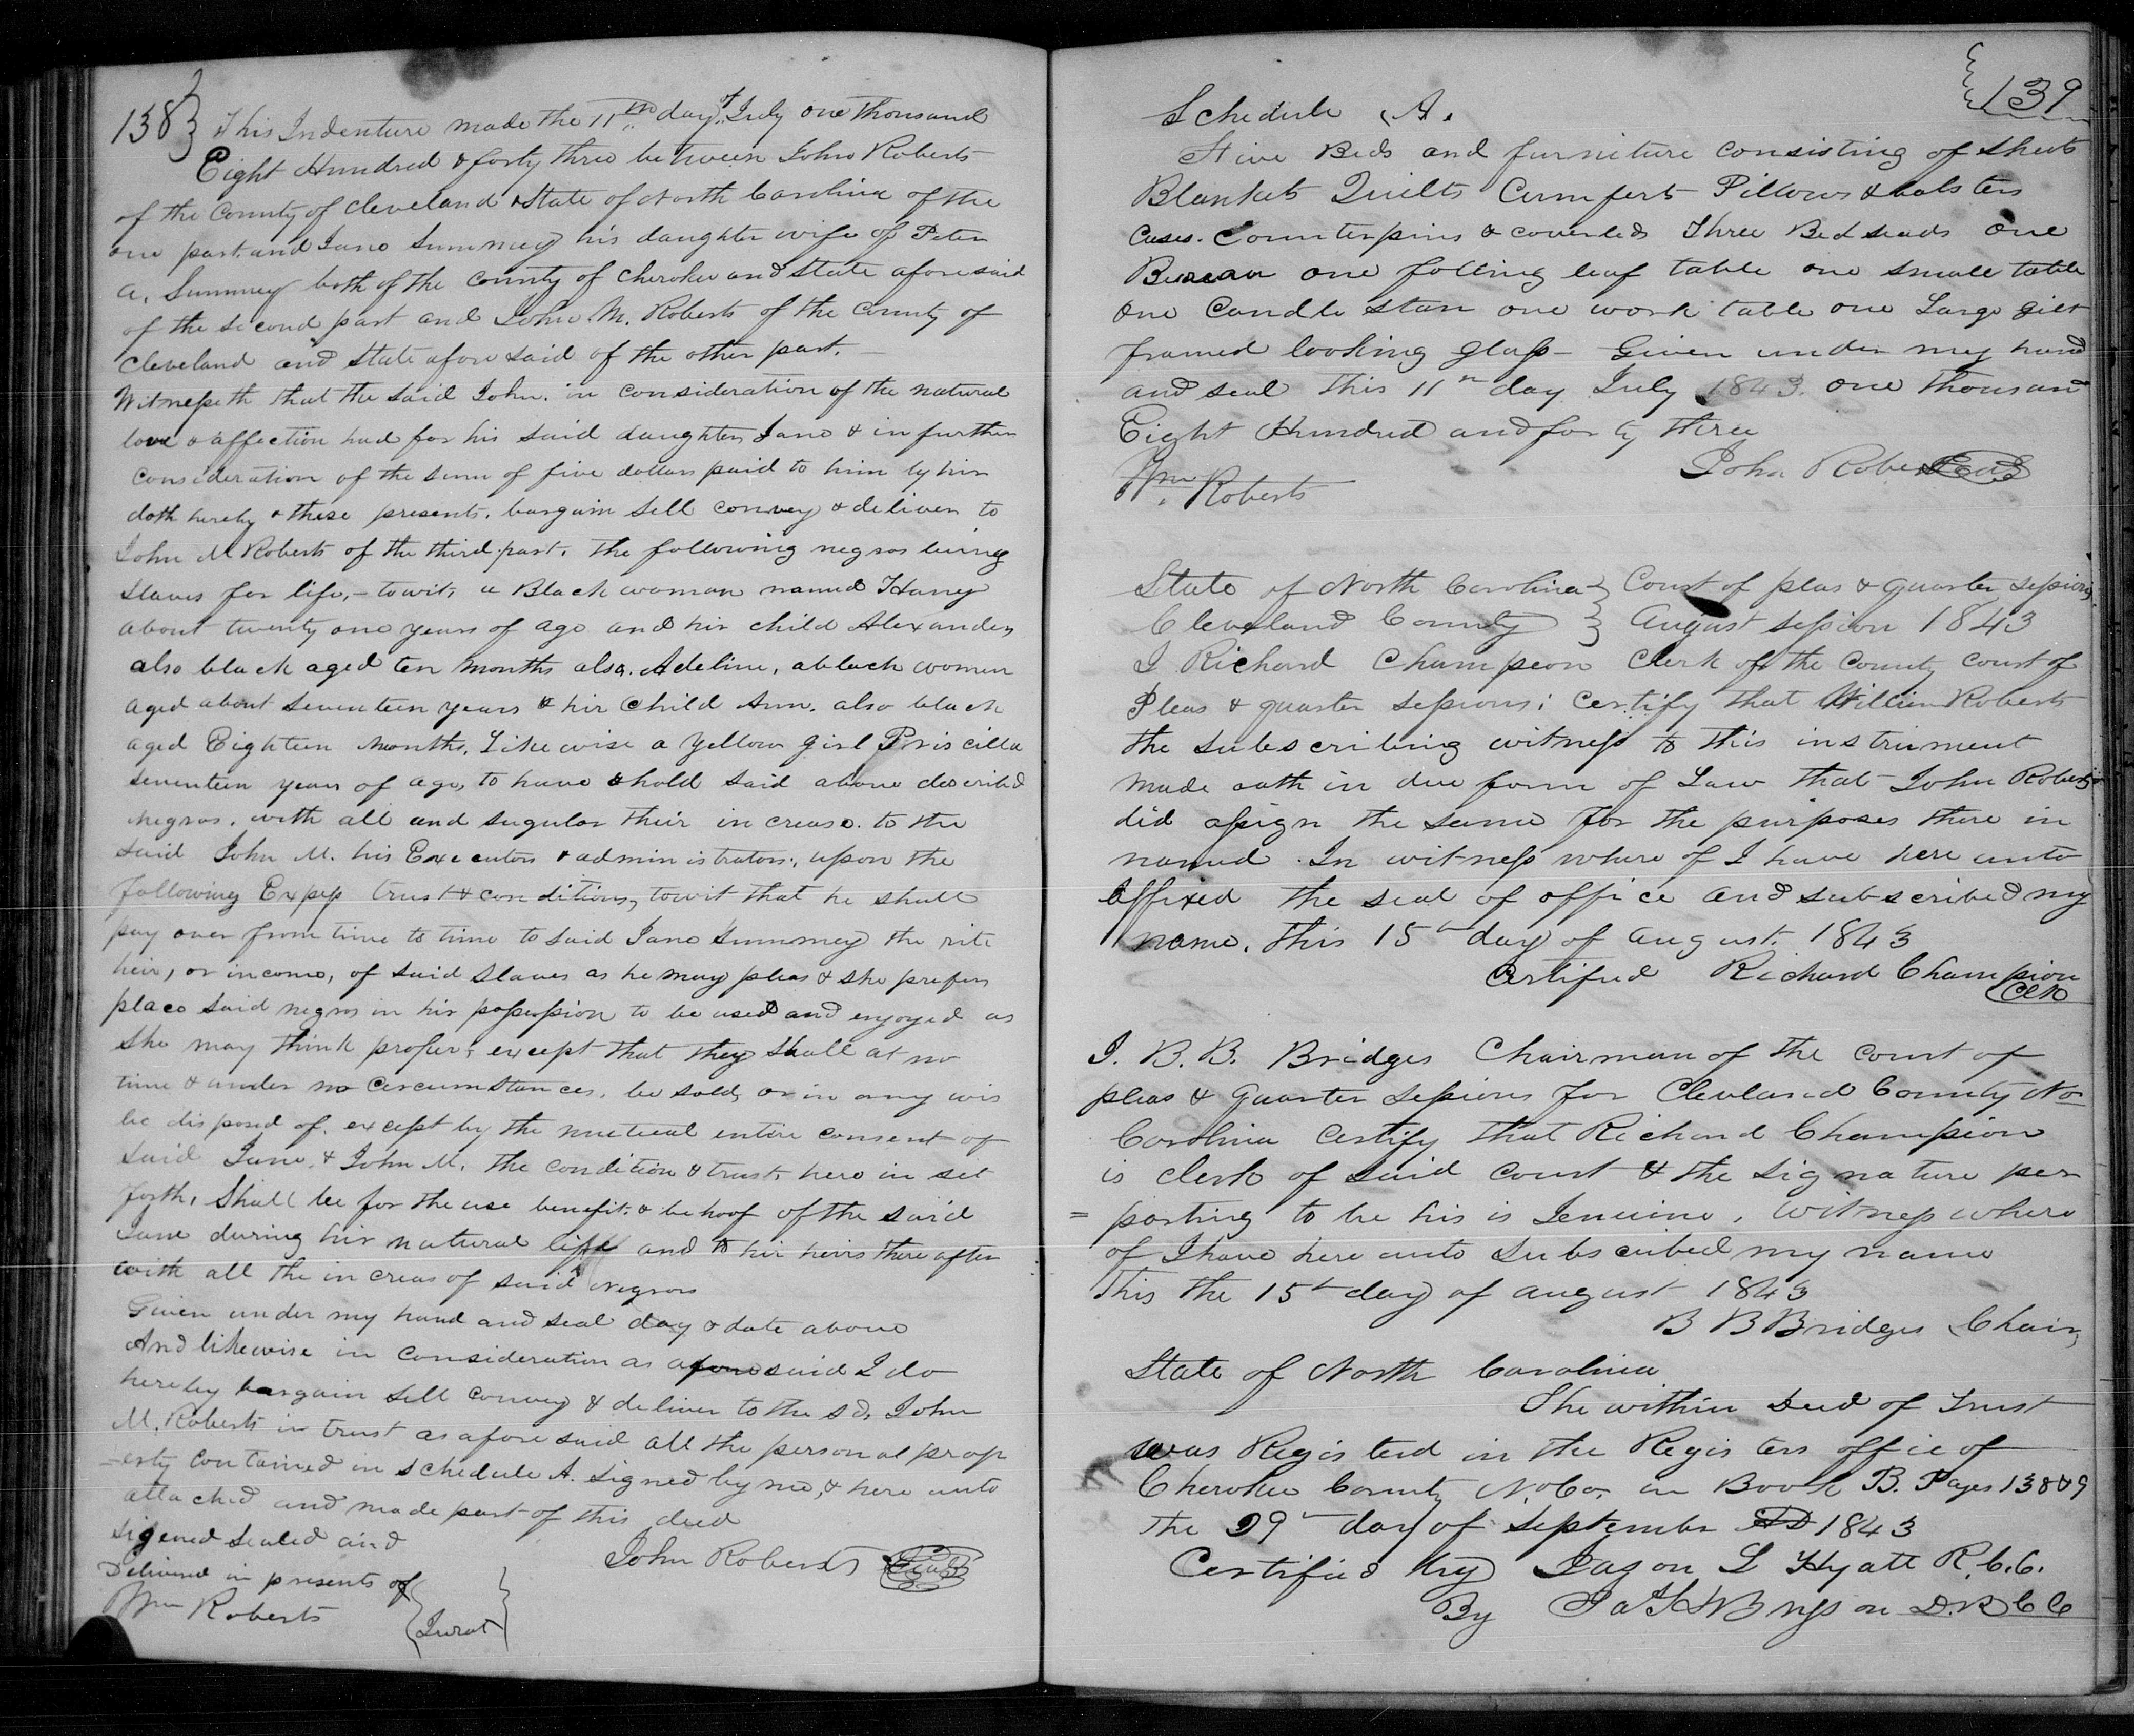 138
This Indenture made the 11th day of July one thousand
Eight Hundred & forty three between John Roberts
of the County of Cleveland & State of North Carolina of the
one part. and Jane Summey his daughter wife of Peter
A. Summey both of the County of Cherokee and State afore said
of the second part and John M. Roberts of the County of
Cleveland and State afore said of the other part.
Witnesseth that the said John. in consideration of the natural
love & affection had for his said daughter Jane & in further
consideration of the sum of five dollars paid to him by him
doth hereby & these presents. bargain sell convey & deliver to
John M Roberts of the third part. the following negros being
slaves for life, - towit, a Black woman named
about twenty one years of age and hir child Alexander
also black aged ten months also. Adeline, a black women
aged about seventeen years & hir child Ann. also black
aged Eighteen months. Likewise a yellow girl Priscilla
seventeen years of age, to have & hold said above described
negros. with all and sugular their increase. to the
said John M. his Executors & administrators, upon the
following trust & conditions, towit that he shall
pay over from time to time to said Jane Summey the
heir, or income, of said slaves as he may pleas & she prefers
place said negros in hir possession to be used and enjoyed as
she may think proper, except that they shall at no
time & under no circumstances, be sold, or in any wis
be disposed of. except by the mutual entire consent of
said Jane, & John M. the condition & trust, here in set
forth, Shall be for the use benefit. & behoof of the said
Jane during hir natural life and to hir heirs there after
with all the increas of said Negros
Given under my hand and seal day & date above
And likewise in consideration as aforesaid I do
hereby bargain sell convey & deliver to the sd. John
M. Roberts in trust as afore said all the personal prop
-erty contained in schedule A. signed by me, & here unto
attached and made part of this deed
Sigened sealed and
Delivered in presents of
John Roberts Seal
Wm Roberts
Jurat
139
Schedule A.
Five Beds and furniture consisting of sheets
Blankets Quilts Cumferts Pillows & bolsters
Cases. Counterpins & coverleds Three Bedsteads one
Bureau one folling leaf table one small table
one Candle stan one work table one Large gilt
framed looking glass - Given under my hand
and seal this 11th day July 1843. one thousand
Eight Hundred and forty three
John Roberts Seal
Wm Roberts
State of North Carolina Court of pleas & quarter sessions.
Cleveland County August session 1843
I Richard Champion Clerk of the County court of
Pleas & quarter sessions; certify that William Roberts
the subscribing witness to this instrument
made oath in due form of Law that John Roberts
did assign the same for the purposes there in
named. In witness where of I have here unto
affixed the seal of office and subscribed my
name. this 15th day of august. 1843
Certified Richard Champion
Clk
I. B. B. Bridges Chairman of the court of
pleas & quarter sessions for Clevland County No
Carolina Certify that Richard Champion
is clerk of said court & the signature per
= porting to be his is Jenuine. witness where
of I have here unto subscubed my name
This the 15th day of august 1843
B B Bridges Chair,
State of North Carolina
The within Deed of Trust
was Registerd in the Registers office of
Cherokee County N. Co. in Book B. Pages 138 & 9
The 29th day of September AD 1843
Certified by Jason L Hyatt R.C.C.
By D.R C C